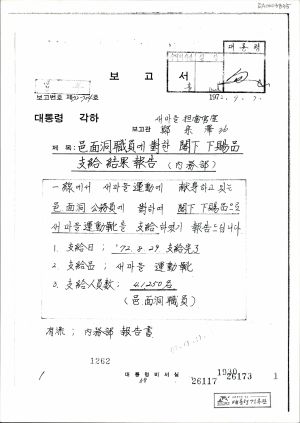 대통령
보 고 서
보고번호 제 호
197 . 9. 7.
대통령 각하
새마을 担當官室
보고관
제 목: 邑面洞職員에 對한 閣下 下賜品
支給 結果 報告 (內務部)
一線에서 새마을 運動에 献身하고 있는
邑面洞 公務員에 對하여 閣下 下賜品으로
새마을 運動靴를 支給하였기 報告합니다
1. 支給日; '72. 8. 29 支給完了
2. 支給品; 새마을 運動靴
3. 支給人員數; 41250名
(邑面洞職員)
有添; 內務部 報告書
1262
대 통 령 비 서 실
1930
26117 26173 1
대통령기록관